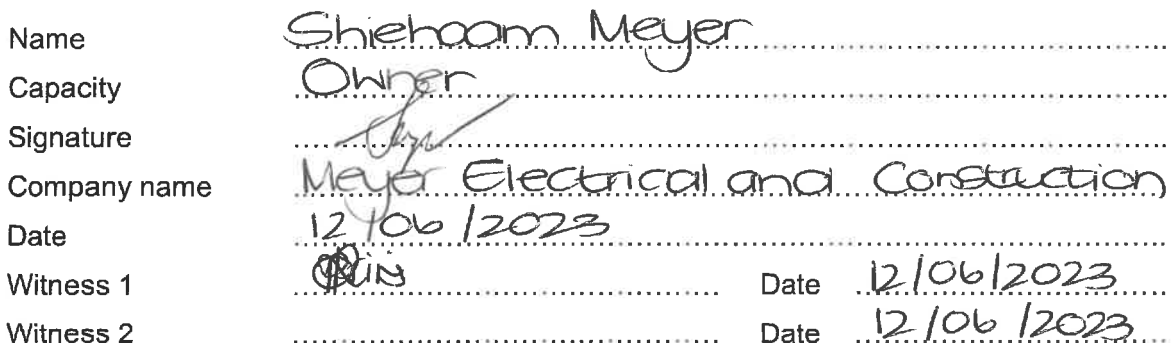 Name Shiehaam Meyer
Capacity Owner
Signature
Company name Meyer Electrical and Construction
Date 12/06/2023
Witness 1 Date 12/06/2023
Witness 2 Date 12/06/2023